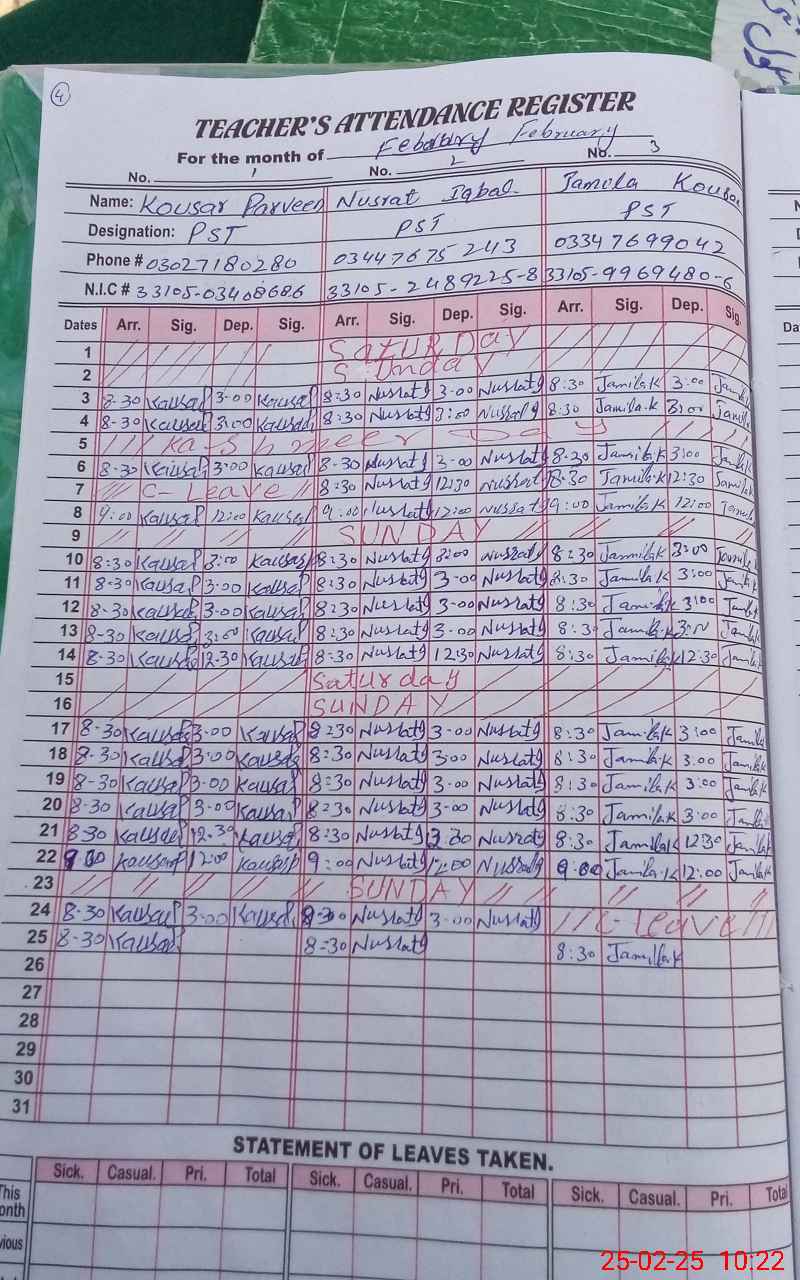 4
TEACHER'S ATTENDANCE REGISTER
For the month of February
No. 1 No. 2 No. 3
Name: Kousar Parveen Nusrat Iqbal. Jamila Kousar
Designation: PST PST PST
Phone # 03027180280 03447675243 03347699042
N.I.C # 33105-03408686 33105-2489225-8 33105-9969480-6
Dates Arr. Sig. Dep. Sig. Arr. Sig. Dep. Sig. Arr. Sig. Dep. Sig.
1 SATURDAY
2 SUNDAY
3 8-30 Kausar 3-00 Kausar 8:30 Nusrat 3-00 Nusrat 8:30 Jamila.K 3:00 Jamila
4 8-30 Kausar 3:00 Kausar 8:30 Nusrat 3:00 Nusrat 8:30 Jamila.K 3:00 Jamila
5 Kashmeer Day
6 8-30 Kausar 3:00 Kausar 8-30 Nusrat 3-00 Nusrat 8-30 Jamila.K 3:00 Jamila.K
7 C-Leave 8:30 Nusrat 12:30 Nusrat 8:30 Jamila.K 12:30 Jamila
8 9:00 Kausar 12:00 Kausar 9:00 Nusrat 12:00 Nusrat 9:00 Jamila.K 12:00 Jamila
9 SUNDAY
10 8:30 Kausar 3:00 Kausar 8:30 Nusrat 3:00 Nusrat 8:30 Jamila.K 3:00 Jamila.K
11 8-30 Kausar 3-00 Kausar 8:30 Nusrat 3-00 Nusrat 8:30 Jamila.K 3:00 Jamila.K
12 8-30 Kausar 3-00 Kausar 8:30 Nusrat 3-00 Nusrat 8:30 Jamila.K 3:00 Jamila.K
13 8-30 Kausar 3:00 Kausar 8:30 Nusrat 3-00 Nusrat 8:30 Jamila.K 3:00 Jamila.K
14 8-30 Kausar 12-30 Kausar 8:30 Nusrat 12:30 Nusrat 8:30 Jamila.K 12:30 Jamila.K
15 Saturday
16 SUNDAY
17 8-30 Kausar 3-00 Kausar 8:30 Nusrat 3-00 Nusrat 8:30 Jamila.K 3:00 Jamila
18 8-30 Kausar 3:00 Kausar 8:30 Nusrat 3:00 Nusrat 8:30 Jamila.K 3.00 Jamila.K
19 8-30 Kausar 3-00 Kausar 8:30 Nusrat 3-00 Nusrat 8:30 Jamila.K 3:00 Jamila.K
20 8-30 Kausar 3-00 Kausar 8:30 Nusrat 3-00 Nusrat 8:30 Jamila.K 3:00 Jamila.K
21 8-30 Kausar 12-30 Kausar 8:30 Nusrat Nusrat 8:30 Jamila.K 12:30 Jamila.K
22 9:00 Kausar 12:00 Kausar 9:00 Nusrat 12:00 Nusrat 9:00 Jamila.K 12:00 Jamila.K
23 SUNDAY
24 8-30 Kausar 3-00 Kausar 8-30 Nusrat 3-00 Nusrat C-Leave
25 8-30 Kausar 8:30 Nusrat 8:30 Jamila.K
26
27
28
29
30
31
STATEMENT OF LEAVES TAKEN.
Sick. Casual. Pri. Total Sick. Casual. Pri. Total Sick. Casual. Pri. Total
This
25-02-25 10:22